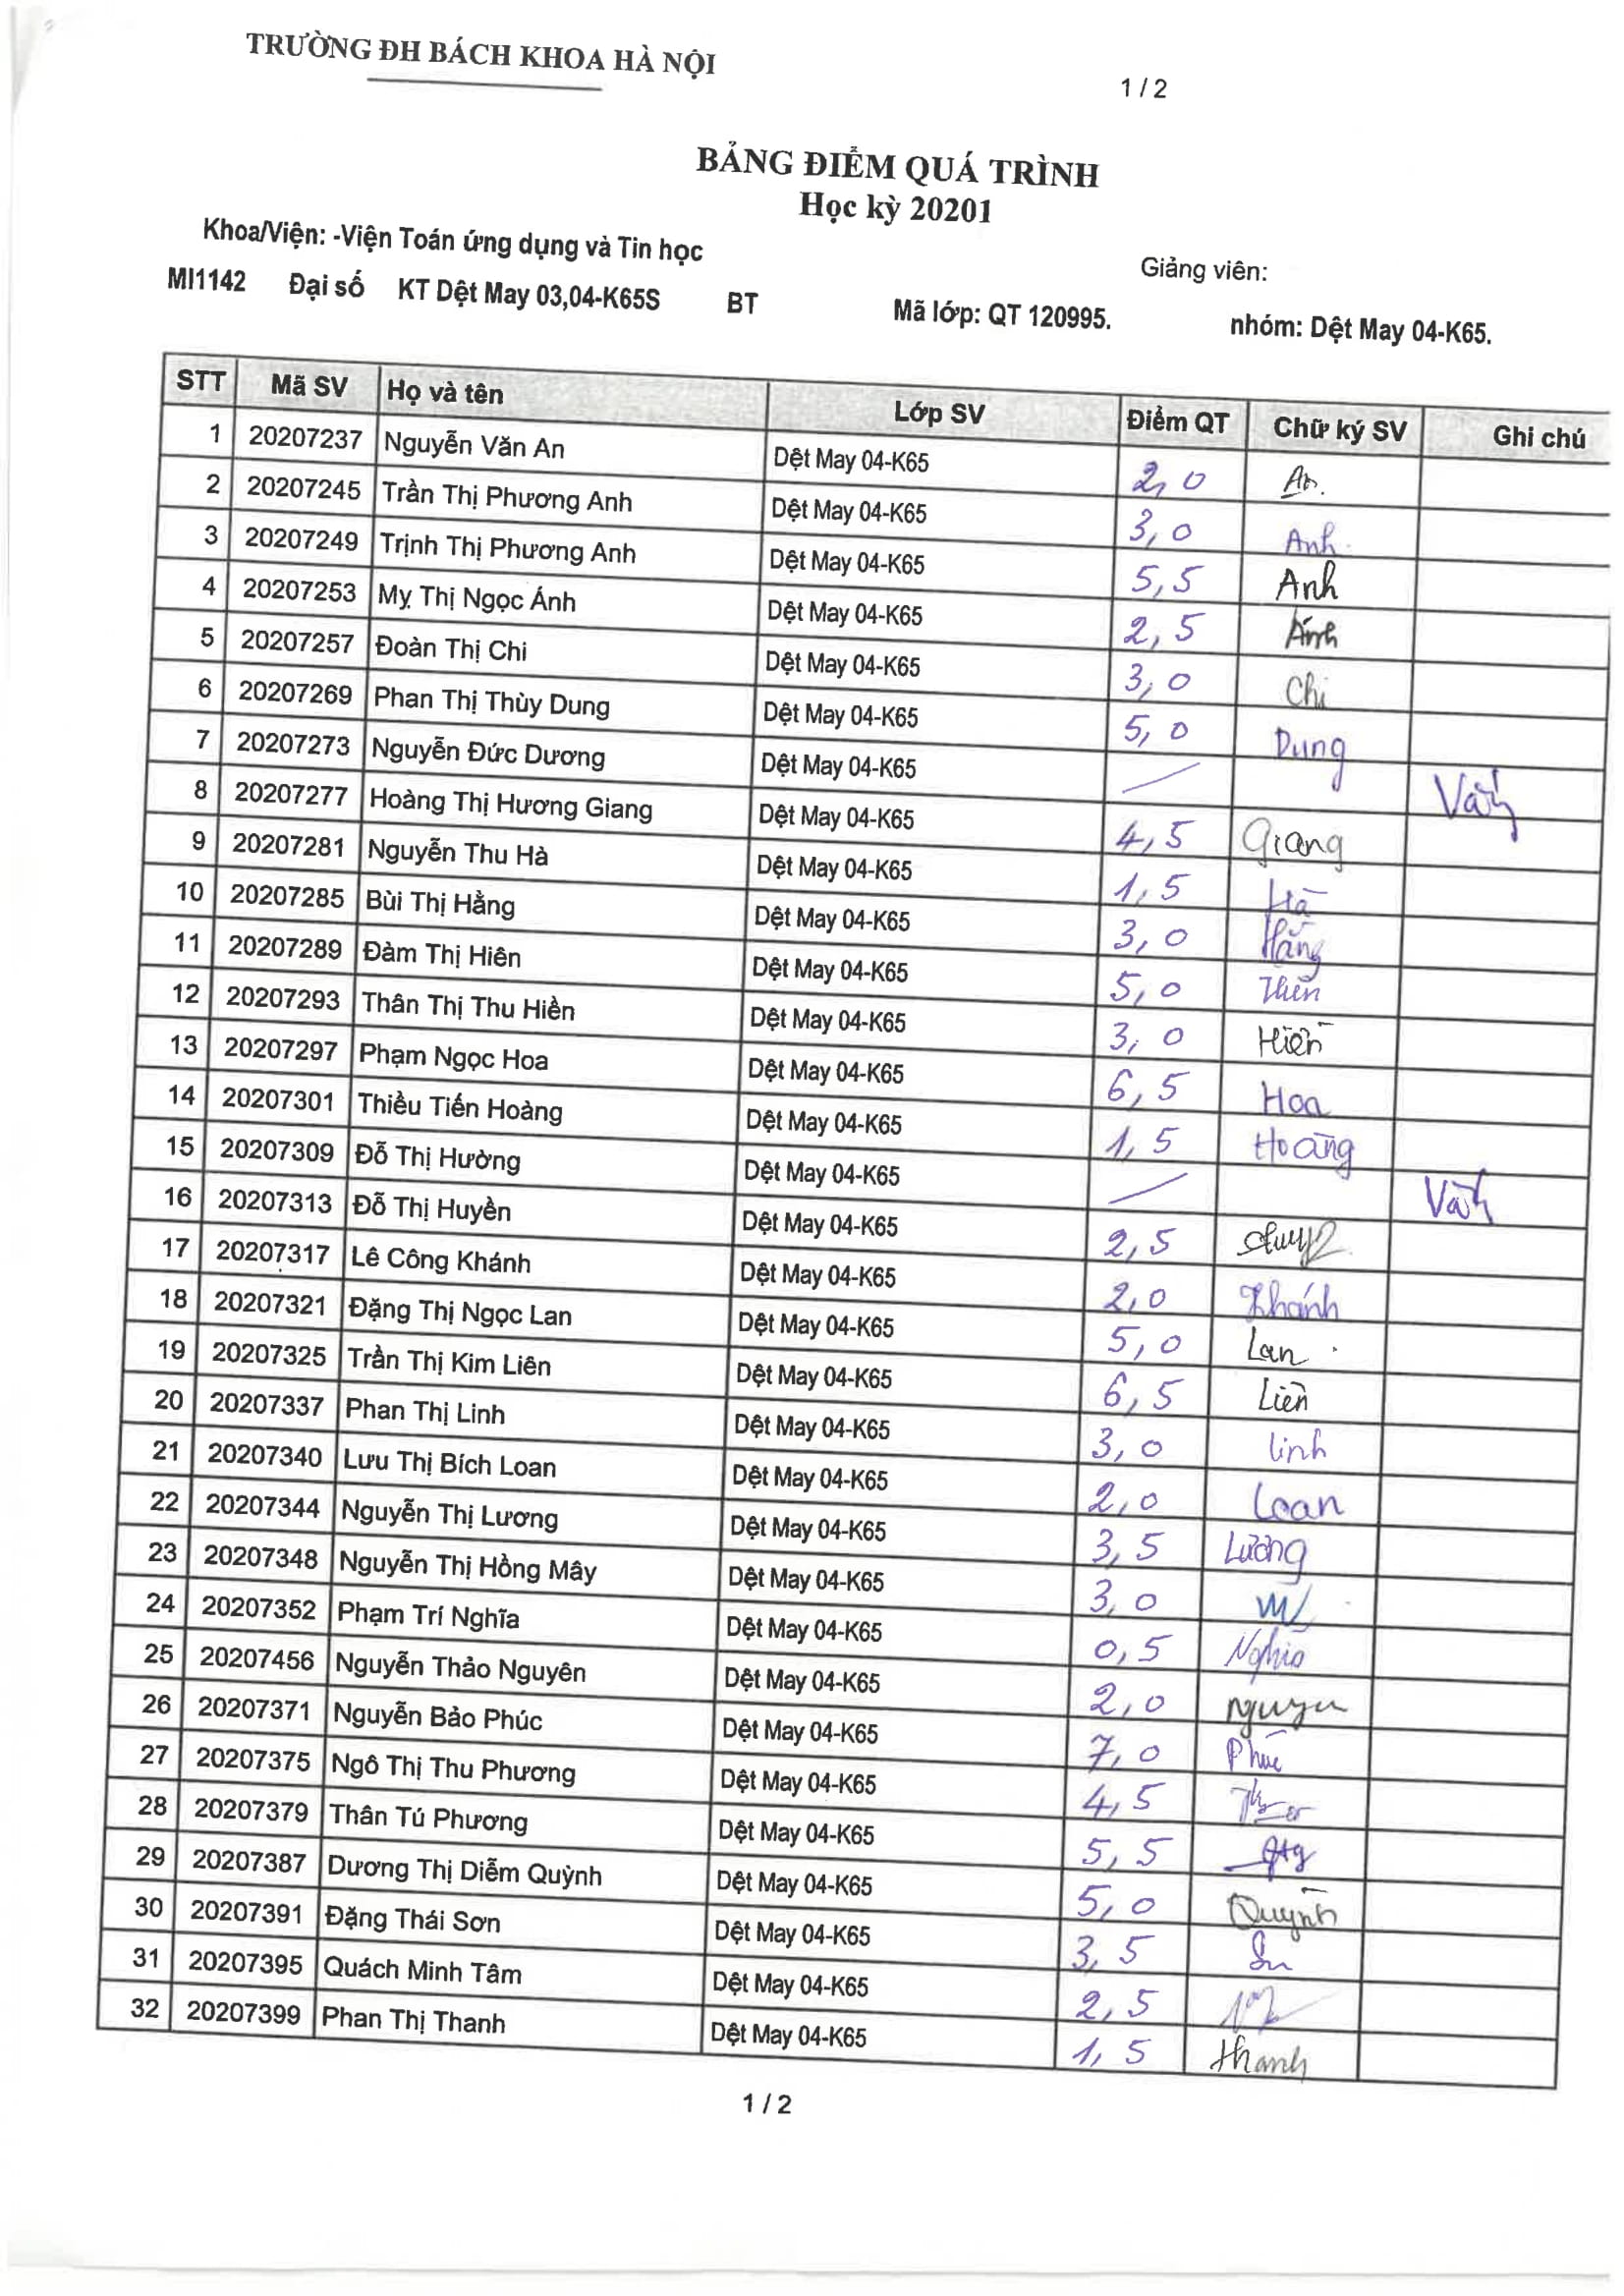 TRƯỜNG ĐH BÁCH KHOA HÀ NỘI
1 / 2
BẢNG ĐIỂM QUÁ TRÌNH
Học kỳ 20201
Khoa/Viện: -Viện Toán ứng dụng và Tin học
Giảng viên:
MI1142 Đại số KT Dệt May 03,04-K65S BT Mã lớp: QT 120995. nhóm: Dệt May 04-K65.
STT Mã SV Họ và tên Lớp SV Điểm QT Chữ ký SV Ghi chú
1 20207237 Nguyễn Văn An Dệt May 04-K65 2,0 An.
2 20207245 Trần Thị Phương Anh Dệt May 04-K65 3,0 Anh.
3 20207249 Trịnh Thị Phương Anh Dệt May 04-K65 5,5 Anh
4 20207253 Mỵ Thị Ngọc Ánh Dệt May 04-K65 2,5 Ánh
5 20207257 Đoàn Thị Chi Dệt May 04-K65 3,0 Chi
6 20207269 Phan Thị Thùy Dung Dệt May 04-K65 5,0 Dung
7 20207273 Nguyễn Đức Dương Dệt May 04-K65 — Vắng
8 20207277 Hoàng Thị Hương Giang Dệt May 04-K65 4,5 Giang
9 20207281 Nguyễn Thu Hà Dệt May 04-K65 1,5 Hà
10 20207285 Bùi Thị Hằng Dệt May 04-K65 3,0 Hằng
11 20207289 Đàm Thị Hiên Dệt May 04-K65 5,0 Hiên
12 20207293 Thân Thị Thu Hiền Dệt May 04-K65 3,0 Hiền
13 20207297 Phạm Ngọc Hoa Dệt May 04-K65 6,5 Hoa
14 20207301 Thiều Tiến Hoàng Dệt May 04-K65 1,5 Hoàng
15 20207309 Đỗ Thị Hường Dệt May 04-K65 — Vắng
16 20207313 Đỗ Thị Huyền Dệt May 04-K65 2,5
17 20207317 Lê Công Khánh Dệt May 04-K65 2,0 Khánh
18 20207321 Đặng Thị Ngọc Lan Dệt May 04-K65 5,0 Lan
19 20207325 Trần Thị Kim Liên Dệt May 04-K65 6,5 Liên
20 20207337 Phan Thị Linh Dệt May 04-K65 3,0 Linh
21 20207340 Lưu Thị Bích Loan Dệt May 04-K65 2,0 Loan
22 20207344 Nguyễn Thị Lương Dệt May 04-K65 3,5 Lương
23 20207348 Nguyễn Thị Hồng Mây Dệt May 04-K65 3,0
24 20207352 Phạm Trí Nghĩa Dệt May 04-K65 0,5 Nghĩa
25 20207456 Nguyễn Thảo Nguyên Dệt May 04-K65 2,0 Nguyên
26 20207371 Nguyễn Bảo Phúc Dệt May 04-K65 7,0 Phúc
27 20207375 Ngô Thị Thu Phương Dệt May 04-K65 4,5
28 20207379 Thân Tú Phương Dệt May 04-K65 5,5
29 20207387 Dương Thị Diễm Quỳnh Dệt May 04-K65 5,0 Quỳnh
30 20207391 Đặng Thái Sơn Dệt May 04-K65 3,5 Sơn
31 20207395 Quách Minh Tâm Dệt May 04-K65 2,5
32 20207399 Phan Thị Thanh Dệt May 04-K65 1,5 Thanh
1 / 2